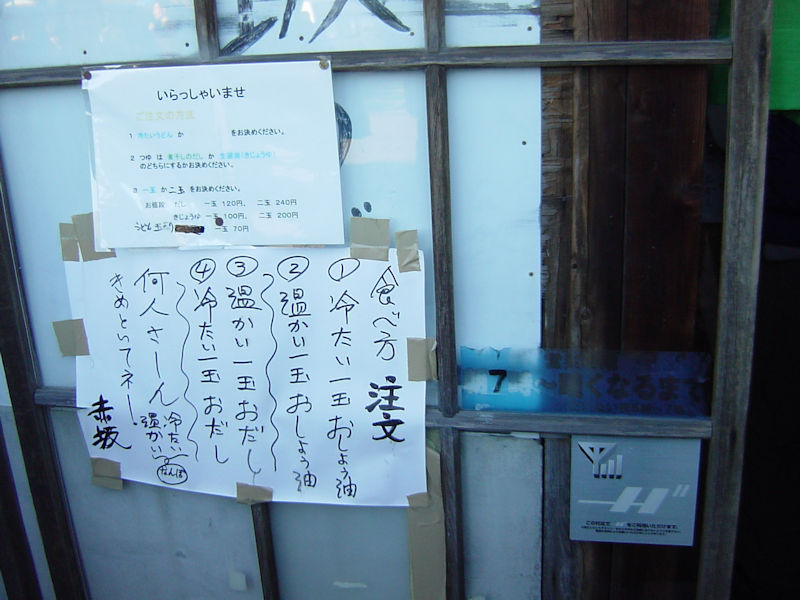 いらっしゃいませ
ご注文の方法
1 冷たいうどん か
をお決めください。
2 つゆ は 煮干しのだし か 生醤油(きじょうゆ)
のどちらにするかお決めください。
3 一玉 か 二玉 をお決めください。
お値段 だし 一玉 120円、 二玉 240円
きじょうゆ 一玉 100円、 二玉 200円
うどん玉売り 一玉 70円
食べ方 注文
① 冷たい一玉おしょう油
② 温かい一玉おしょう油
③ 温かい一玉おだし
④ 冷たい一玉おだし
何人さーん 冷たい 温かい なんぼ
きめといてネー!
赤坂
7
くなるます
H"
この付近で H" をご利用いただけます。